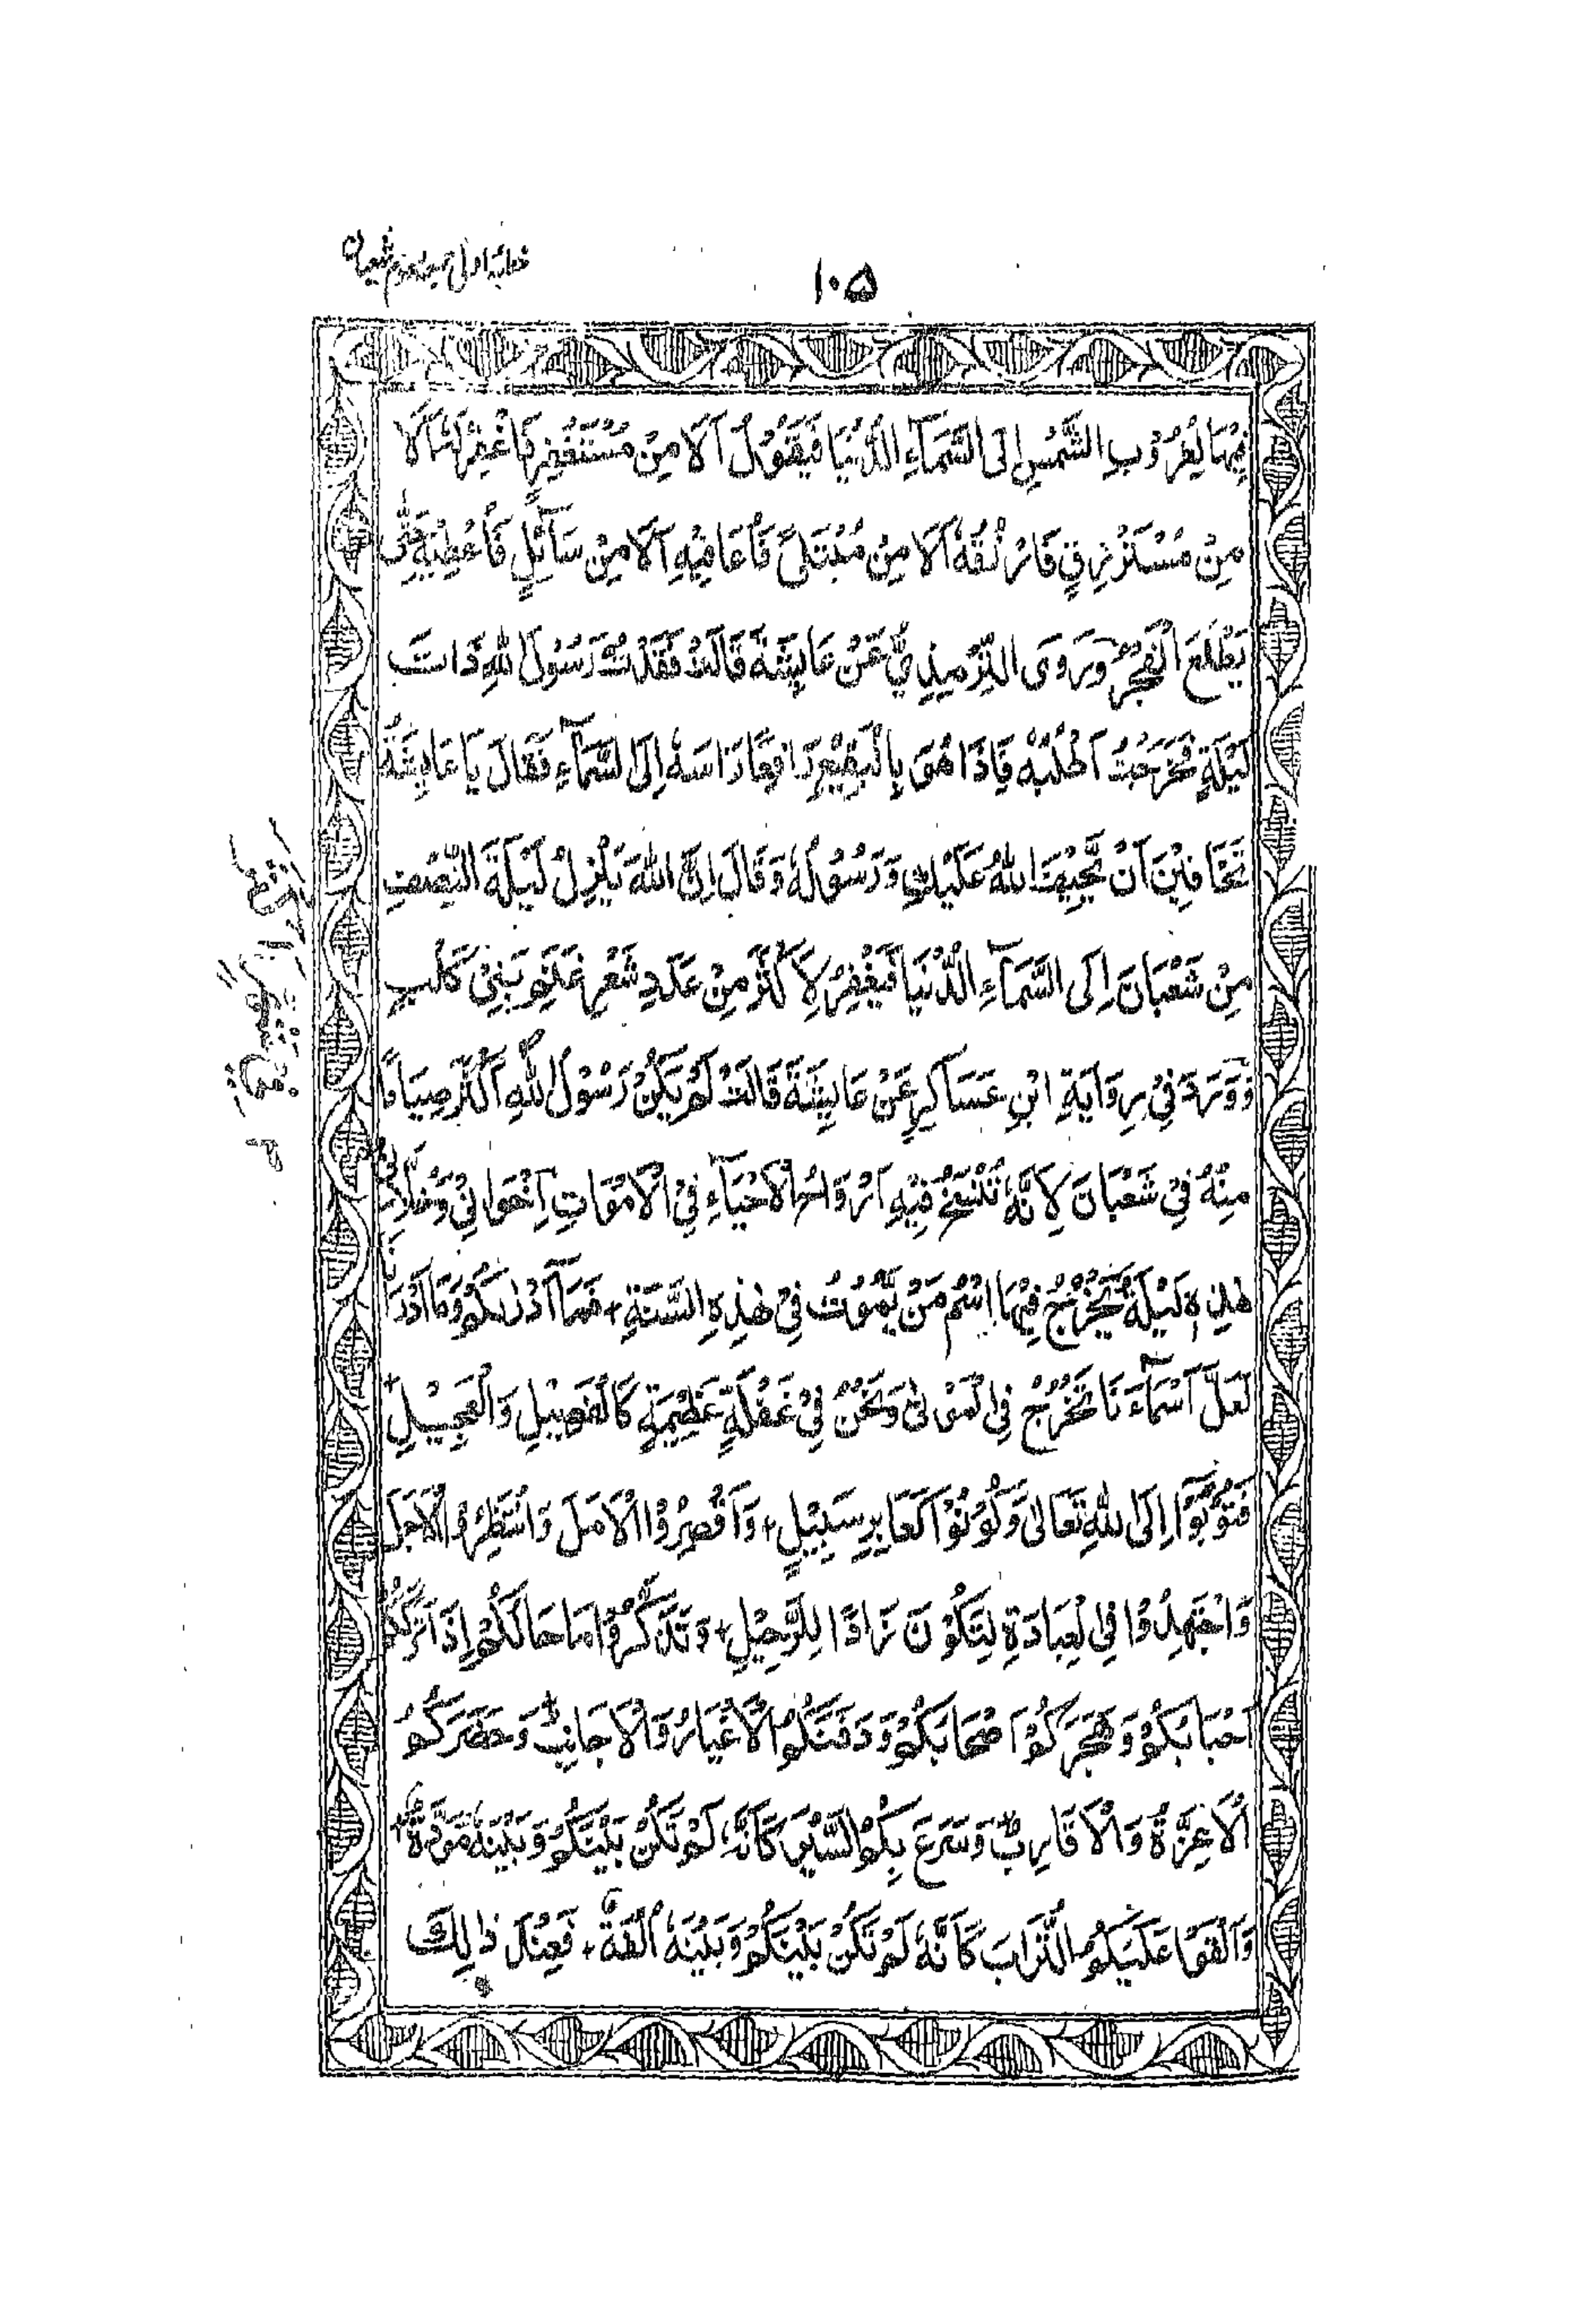 ۱۰۵
فِيْهَا لِغُرُوْبِ الشَّمْسِ إِلَى السَّمَآءِ الدُّنْيَا فَيَقُوْلُ اَلَا مِنْ مُسْتَغْفِرٍ فَاَغْفِرَ لَهٗ اَلَا
مِنْ مُسْتَرْزِقٍ فَارْزُقَهٗ اَلَا مِنْ مُبْتَلًى فَأُعَافِيْهِ اَلَا مِنْ سَآئِلٍ فَأُعْطِيَهٗ حَتّٰى
يَطْلُعَ الْفَجْرُ وَرَوَى التِّرْمِذِيُّ عَنْ عَايِشَةَ قَالَتْ فَقَدْتُ رَسُوْلَ اللهِ ذَاتَ
لَيْلَةٍ فَخَرَجْتُ اَطْلُبُهٗ فَاِذَا هُوَ بِالْبَقِيْعِ رَافِعًا رَاسَهٗ اِلَى السَّمَآءِ فَقَالَ يَا عَايِشَةُ
تَخَافِيْنَ اَنْ يَّحِيْفَ اللهُ عَلَيْكِ وَرَسُوْلُهٗ وَقَالَ اِنَّ اللهَ يَنْزِلُ لَيْلَةَ النِّصْفِ
مِنْ شَعْبَانَ اِلَى السَّمَآءِ الدُّنْيَا فَيَغْفِرُ لِاَكْثَرَ مِنْ عَدَدِ شَعْرِ غَنَمِ بَنِيْ كَلْبٍ
وَوَرَدَ فِيْ رِوَايَةِ ابْنِ عَسَاكِرٍ عَنْ عَايِشَةَ قَالَتْ لَمْ يَكُنْ رَسُوْلُ اللهِ اَكْثَرَ صِيَامًا
مِنْهُ فِيْ شَعْبَانَ لِاَنَّهٗ تُنْسَخُ فِيْهِ اَرْوَاحُ الْاَحْيَآءِ فِي الْاَمْوَاتِ اِخْوَانِيْ وَخُلَّانِيْ
هٰذِهٖ لَيْلَةٌ يُخْرَجُ فِيْهَا اِسْمُ مَنْ يَّمُوْتُ فِيْ هٰذِهِ السَّنَةِ + فَمَا اَدْرٰىكُمْ وَمَا اَدْرَانَا
لَعَلَّ اَسْمَآءَنَا تُخْرَجُ فِي الْمَوْتٰى وَنَحْنُ فِيْ غَفْلَةٍ عَظِيْمَةٍ كَالْفَصِيْلِ وَالْعَجِيْلِ +
فَتُوْبُوْآ اِلَى اللهِ تَعَالٰى وَكُوْنُوْا كَعَابِرِ سَبِيْلٍ + وَاَقْصِرُوْا الْاَمَلَ وَانْتَظِرُوا الْاَجَلَ
وَاجْتَهِدُوْا فِي الْعِبَادَةِ لِتَكُوْنَ زَادًا لِلرَّحِيْلِ + وَتَذَكَّرُوْا مَا حَالُكُمْ اِذَا تَرَكَكُمْ
اَحْبَابُكُمْ وَهَجَرَكُمْ اَصْحَابُكُمْ وَدَفَنَكُمُ الْاَغْيَارُ وَالْاَجَانِبُ وَحَضَرَكُمُ
الْاَعِزَّةُ وَالْاَقَارِبُ وَسَرَعَ بِكُمُ السَّيْرَ كَاَنَّهٗ لَمْ تَكُنْ بَيْنَكُمْ وَبَيْنَهٗ مَوَدَّةٌ +
وَاَلْقَوْا عَلَيْكُمُ التُّرَابَ كَاَنَّهٗ لَمْ تَكُنْ بَيْنَكُمْ وَبَيْنَهٗ اُلْفَةٌ + فَعِنْدَ ذٰلِكَ